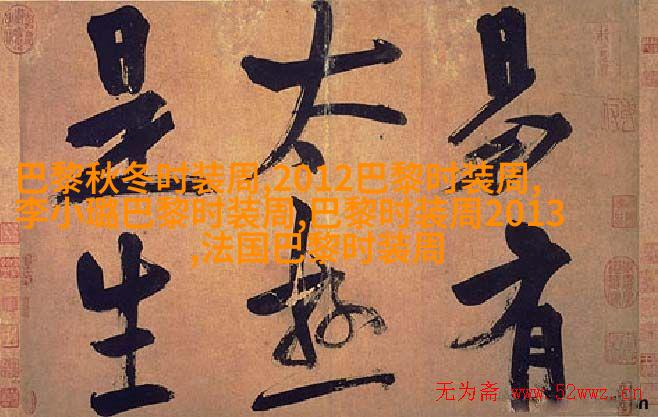 易有
太極
是生
巴黎秋冬时装周,2012巴黎时装周,
李小璐巴黎时装周,巴黎时装周2013
,法国巴黎时装周
无为斋 www.52wwz.cn
n